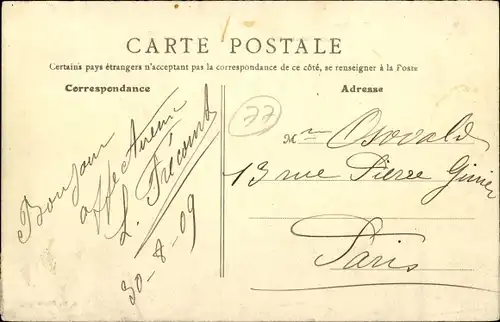 CARTE POSTALE
Certains pays étrangers n'acceptant pas la correspondance de ce côté, se renseigner à la Poste
Correspondance
Adresse
77
Bonjour
affectueux
L. Frécourt
30-8-09
Mr Osowald
13 rue Pierre Ginier
Paris